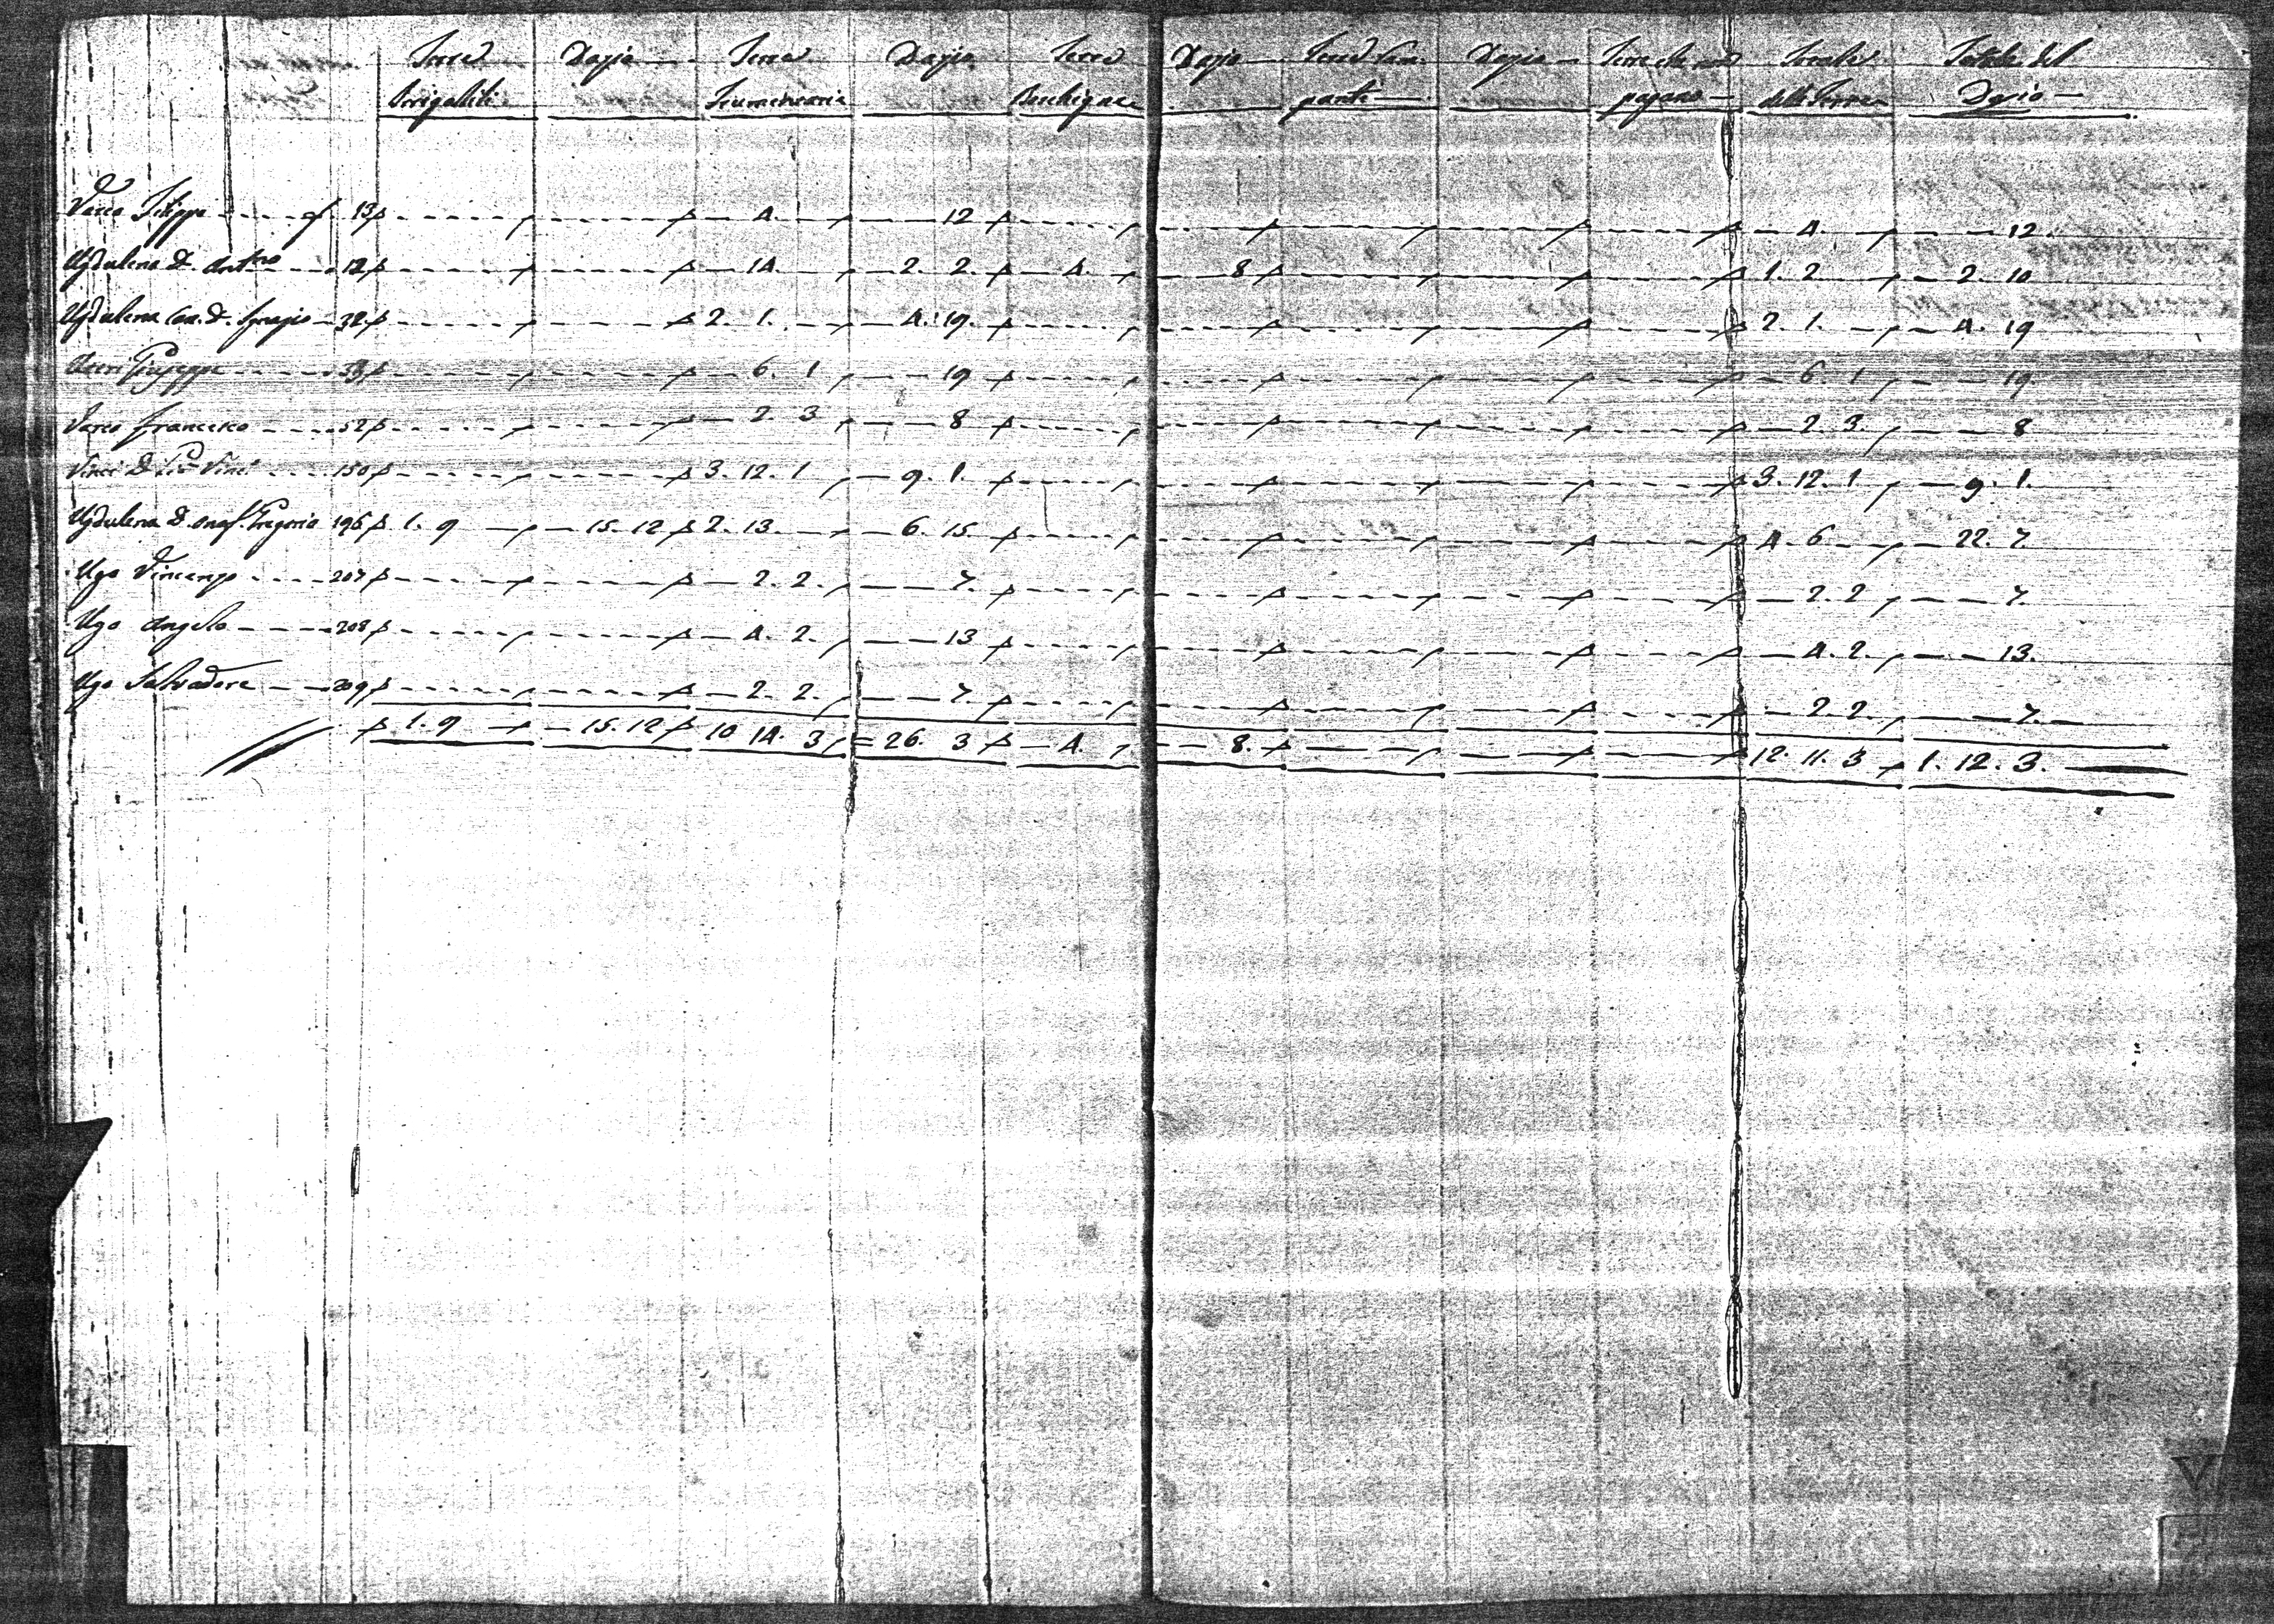 Terre Dazio Terre Dazio Terre Dazio Terre Dazio Terre che non Totale Totale del
pagano delle Terre Dazio
Varco Filippo f 13 4. 12 4. 12.
Ugdulena D. Ant.no 12 14. 2. 2. 4. 8 1. 2 2. 10
Ugdulena Can. D. Ignazio 32 2. 1. 4. 19. 2. 1. 4. 19
Giuseppe 33 6. 1 19 6. 1 19.
Varco Francesco 52 2. 3 8 2. 3. 8
Vinci D. Vinci 150 3. 12. 1 9. 1. 3. 12. 1 9. 1.
Ugdulena D. Onof. Gregorio 196 1. 9 15. 12 2. 13. 6. 15. 4. 6 22. 7.
Ugo Vincenzo 207 2. 2. 7. 2. 2 7.
Ugo Angelo 208 4. 2. 13 4. 2. 13.
Ugo Salvadore 209 2. 2. 7. 2. 2. 7.
1. 9 15. 12 10 14. 3 26. 3 4. 8. 12. 11. 3 1. 12. 3.